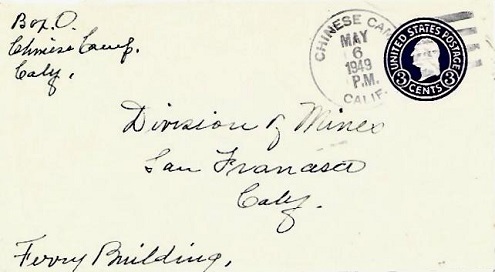 Box O.
Chinese Camp.
Calif.
CHINESE CAM
MAY
6
1949
P.M.
CALIF.
UNITED STATES POSTAGE
3 CENTS 3
Division of Mines
San Francisco
Calif.
Ferry Building,